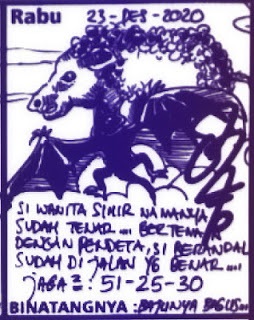 Rabu 23-DES-2020
SI WANITA SIHIR NAMANYA
SUDAH TENAR... BERTEMAN
DENGAN PENDETA, SI BERANDAL
SUDAH DI JALAN YG BENAR....
JAGA²: 51-25-30
BINATANGNYA: BAJUNYA BAGUS...